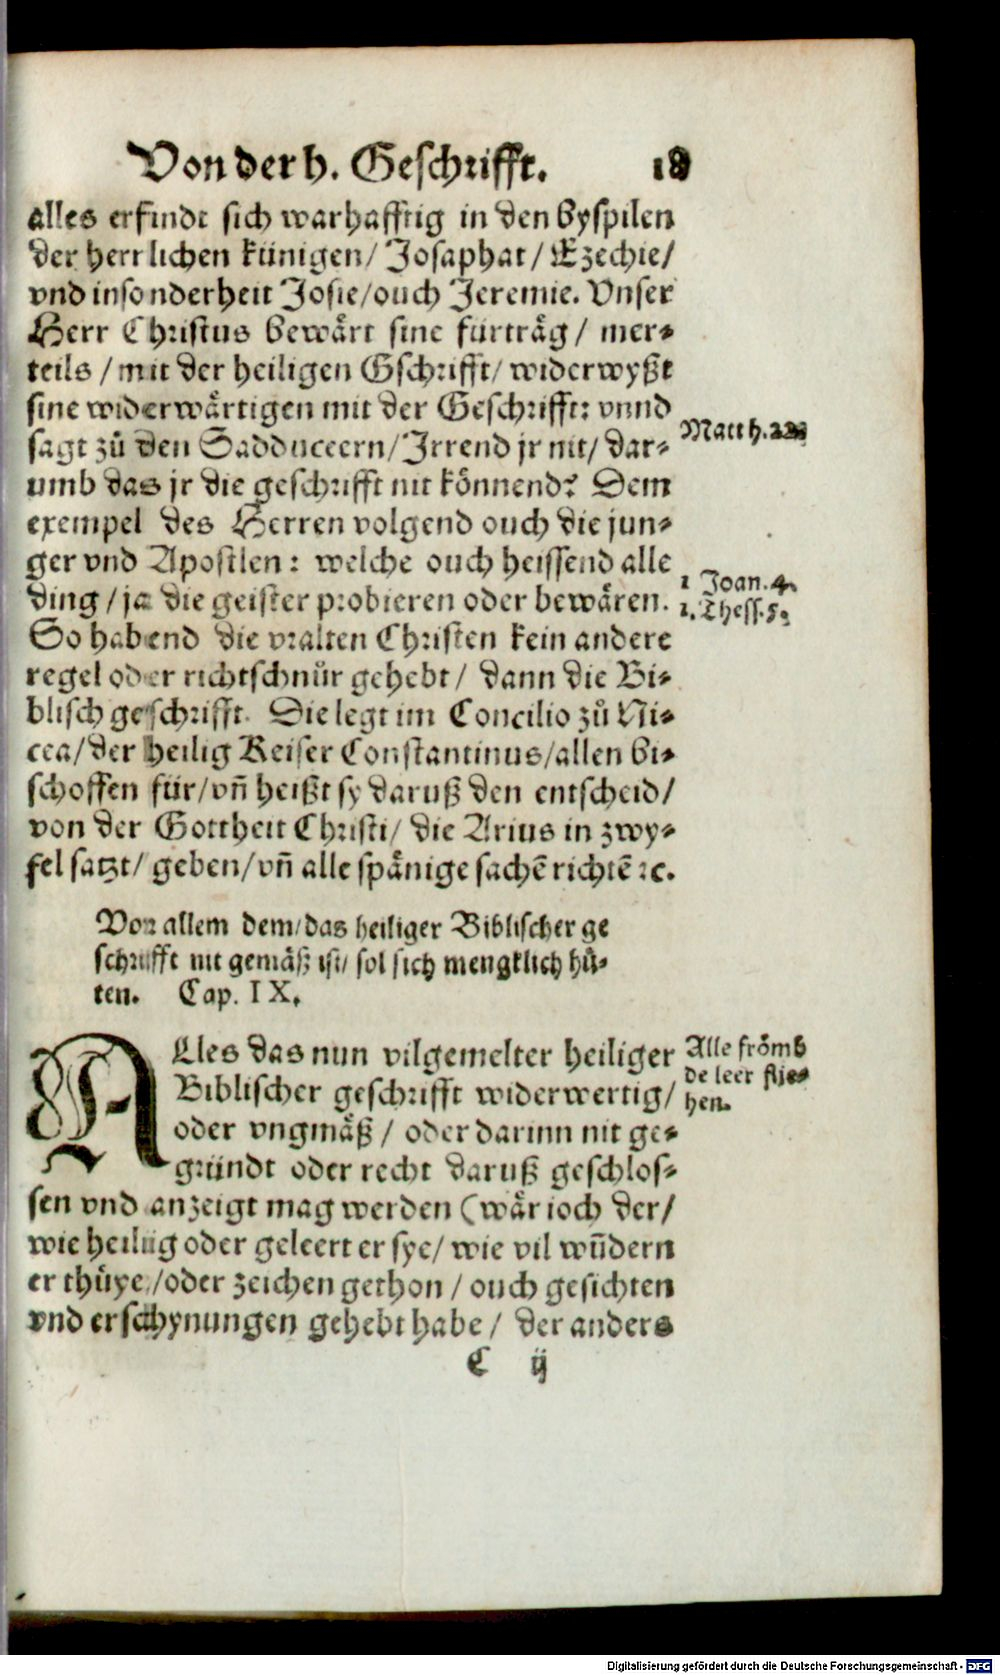 Von der h. Geschrifft. 18
alles erfindt sich warhafftig in den byspilen
der herrlichen künigen/ Josaphat/ Ezechie/
vnd insonderheit Josie/ouch Jeremie. Vnser
Herr Christus bewårt sine fürtråg/ mer⸗
teils/mit der heiligen Gschrifft/ widerwyßt
sine widerwårtigen mit der Geschrifft: vnnd
sagt zů den Sadduceern/Irrend jr nit/ dar⸗
umb das jr die geschrifft nit könnend? Dem
Matth. 22.
exempel des Herren volgend ouch die jun⸗
ger vnd Apostlen: welche ouch heissend alle
ding/ja die geister probieren oder bewåren.
1 Joan. 4.
1. Thess. 5.
So habend die vralten Christen kein andere
regel oder richtschnůr gehebt/ dann die Bi⸗
blisch geschrifft. Die legt im Concilio zů Ni⸗
cea/der heilig Keiser Constantinus/allen bi⸗
schoffen für/vñ heißt sy daruß den entscheid/
von der Gottheit Christi/ die Arius in zwy⸗
fel satzt/ geben/vñ alle spånige sachē richtē ꝛc.
Vor allem dem/das heiliger Biblischer ge
schrifft nit gemåß ist/ sol sich mengklich hů⸗
ten. Cap. IX.
ALles das nun vilgemelter heiliger
Biblischer geschrifft widerwertig/
oder vngmåß/ oder darinn nit ge⸗
gründt oder recht daruß geschlos⸗
Alle frömb
de leer flie⸗
hen.
sen vnd anzeigt mag werden (wår ioch der/
wie heilig oder geleert er sye/ wie vil wūdern
er thüye/oder zeichen gethon/ ouch gesichten
vnd erschynungen gehebt habe/ der anders
C ij
Digitalisierung gefördert durch die Deutsche Forschungsgemeinschaft - DFG